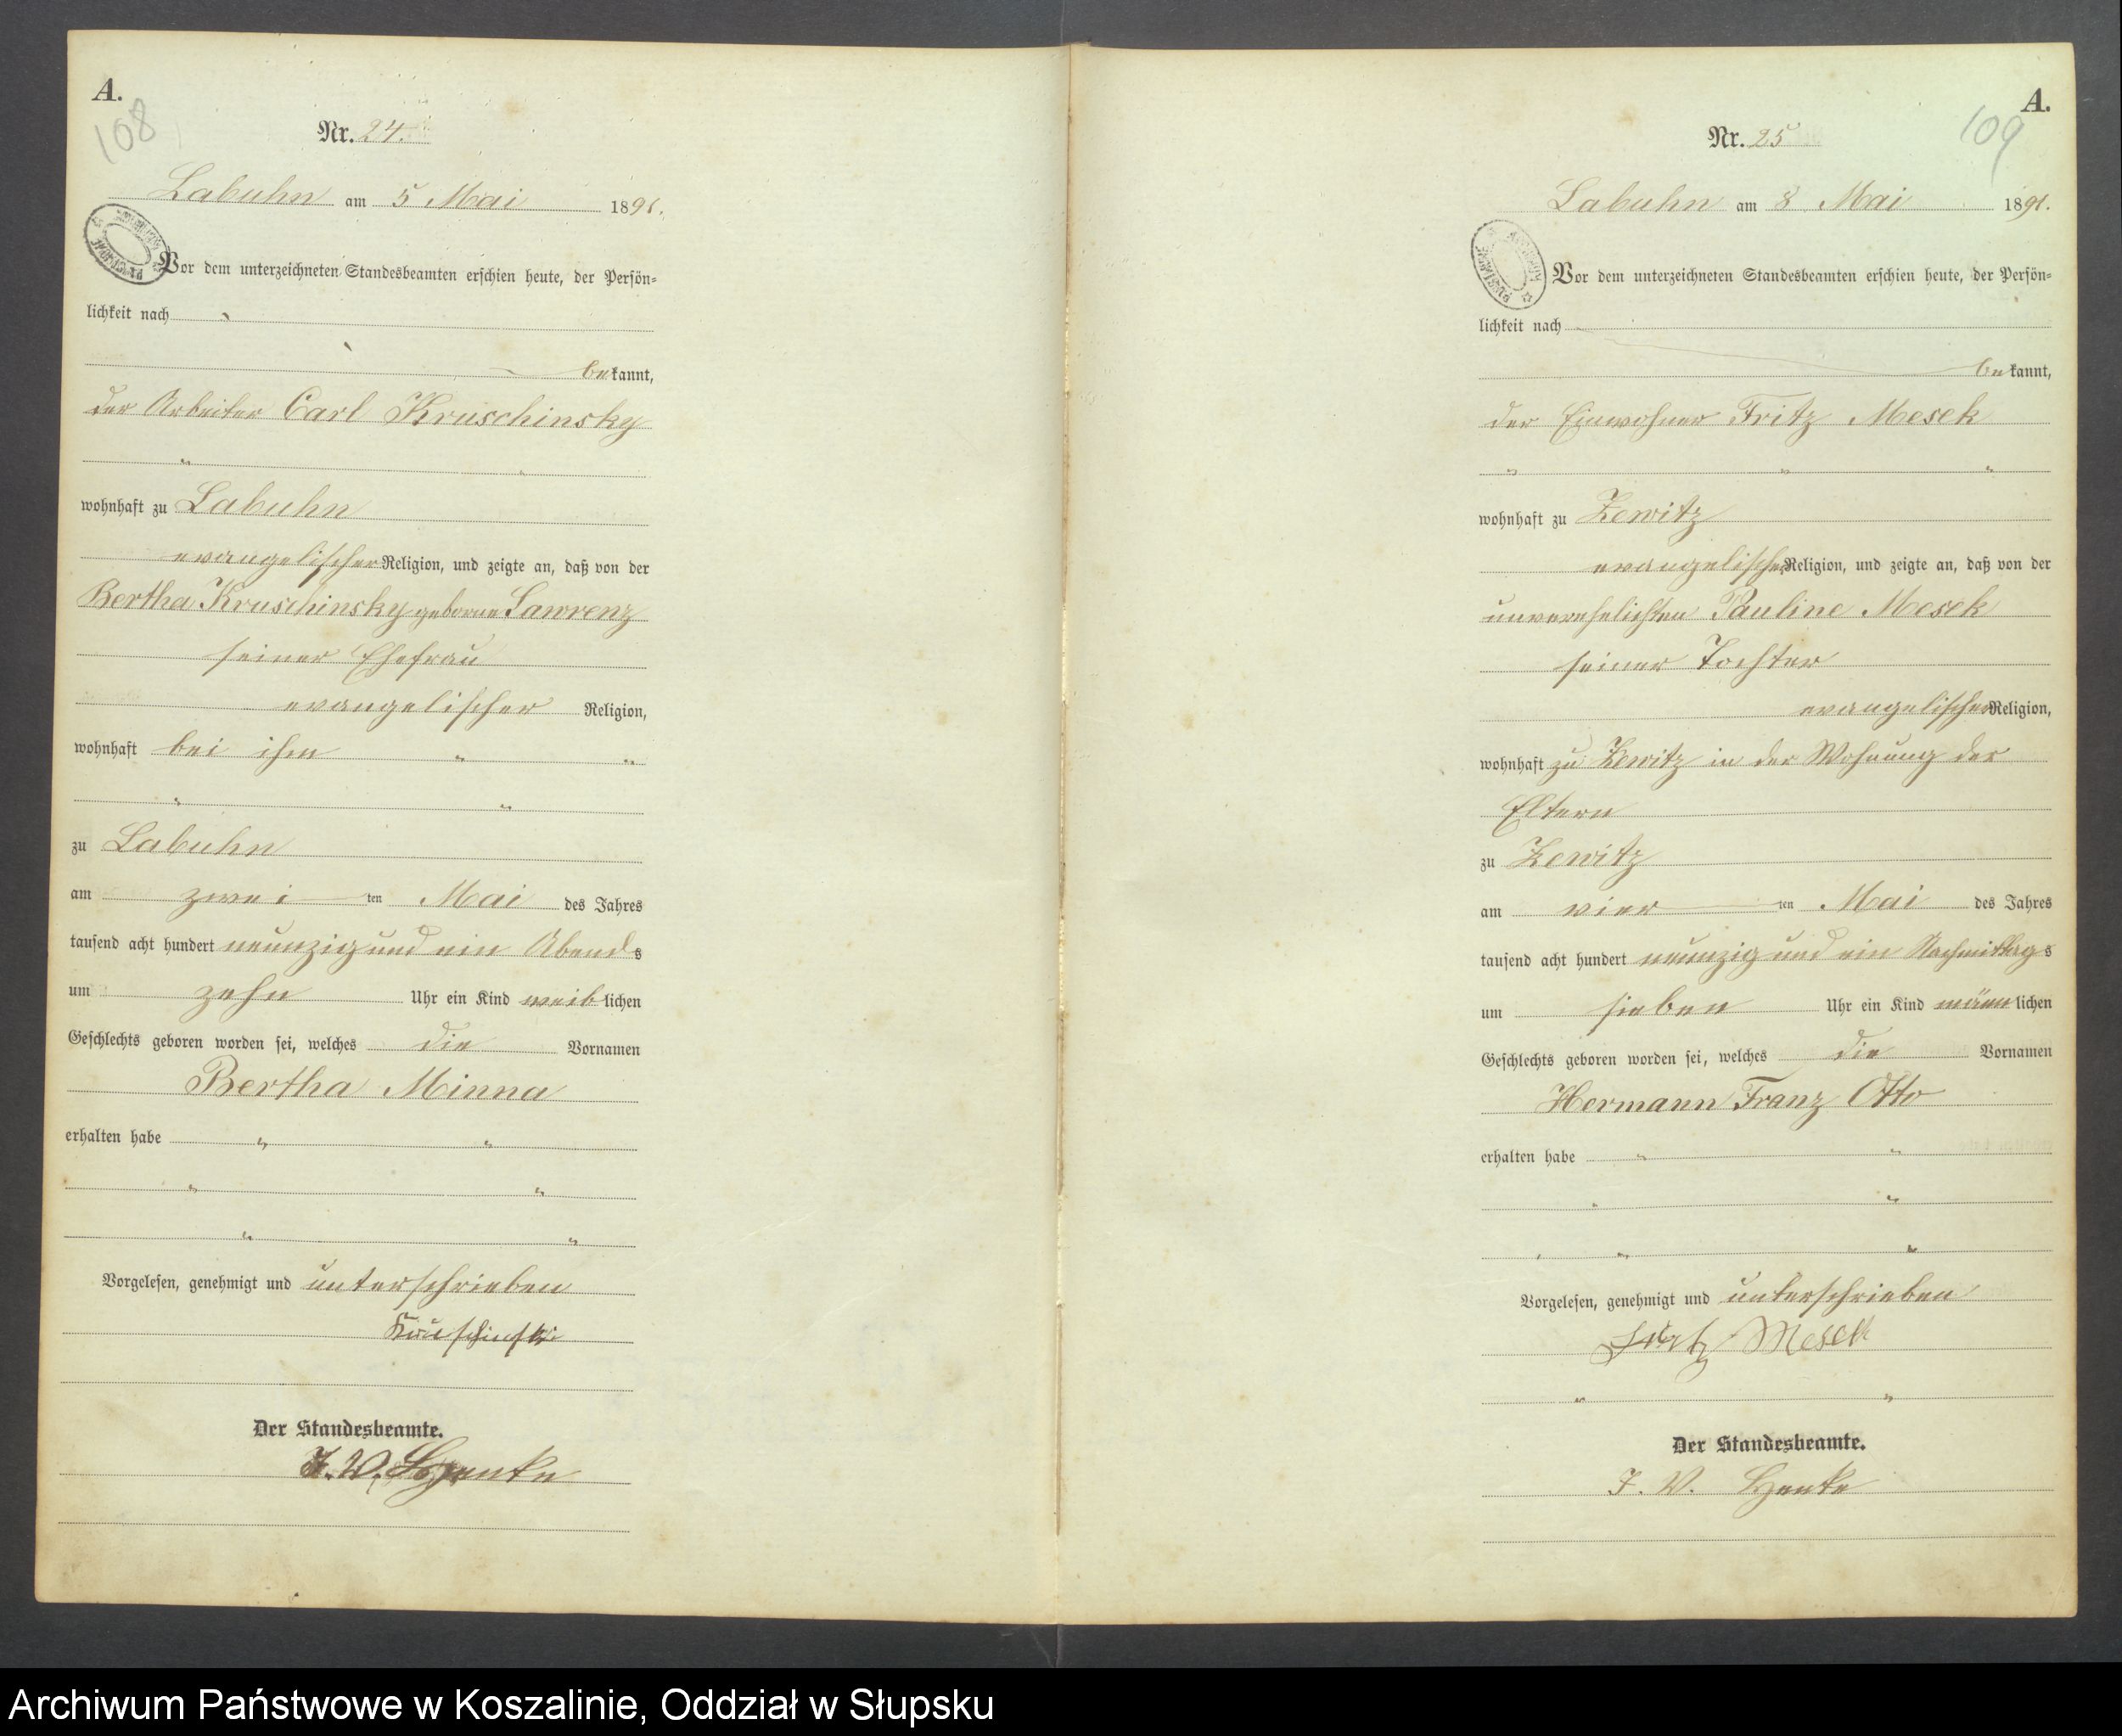 A.
108
Nr. 24.
Labuhn am 5 Mai 1891.
Vor dem unterzeichneten Standesbeamten erschien heute, der Persön=
lichkeit nach
bekannt,
der Arbeiter Carl Kruschinsky
wohnhaft zu Labuhn
evangelischer Religion, und zeigte an, daß von der
Bertha Kruschinsky geborne Lawrenz
seiner Ehefrau
evangelischer Religion,
wohnhaft bei ihm
zu Labuhn
am zwei ten Mai des Jahres
tausend acht hundert neunzig und ein Abends
um zehn Uhr ein Kind weiblichen
Geschlechts geboren worden sei, welches die Vornamen
Bertha Minna
erhalten habe
Vorgelesen, genehmigt und unterschrieben
Kruschinski
Der Standesbeamte.
J. V. Henke
A.
109
Nr. 25
Labuhn am 8 Mai 1891.
Vor dem unterzeichneten Standesbeamten erschien heute, der Persön=
lichkeit nach
bekannt,
der Einwohner Fritz Mesek
wohnhaft zu Zewitz
evangelischer Religion, und zeigte an, daß von der
unverehelichten Pauline Mesek
seiner Tochter
evangelischer Religion,
wohnhaft zu Zewitz in der Wohnung der
Eltern
zu Zewitz
am vier ten Mai des Jahres
tausend acht hundert neunzig und ein Nachmittags
um sieben Uhr ein Kind männlichen
Geschlechts geboren worden sei, welches die Vornamen
Hermann Franz Otto
erhalten habe
Vorgelesen, genehmigt und unterschrieben
Fritz Mesek
Der Standesbeamte.
J. V. Henke
Archiwum Państwowe w Koszalinie, Oddział w Słupsku